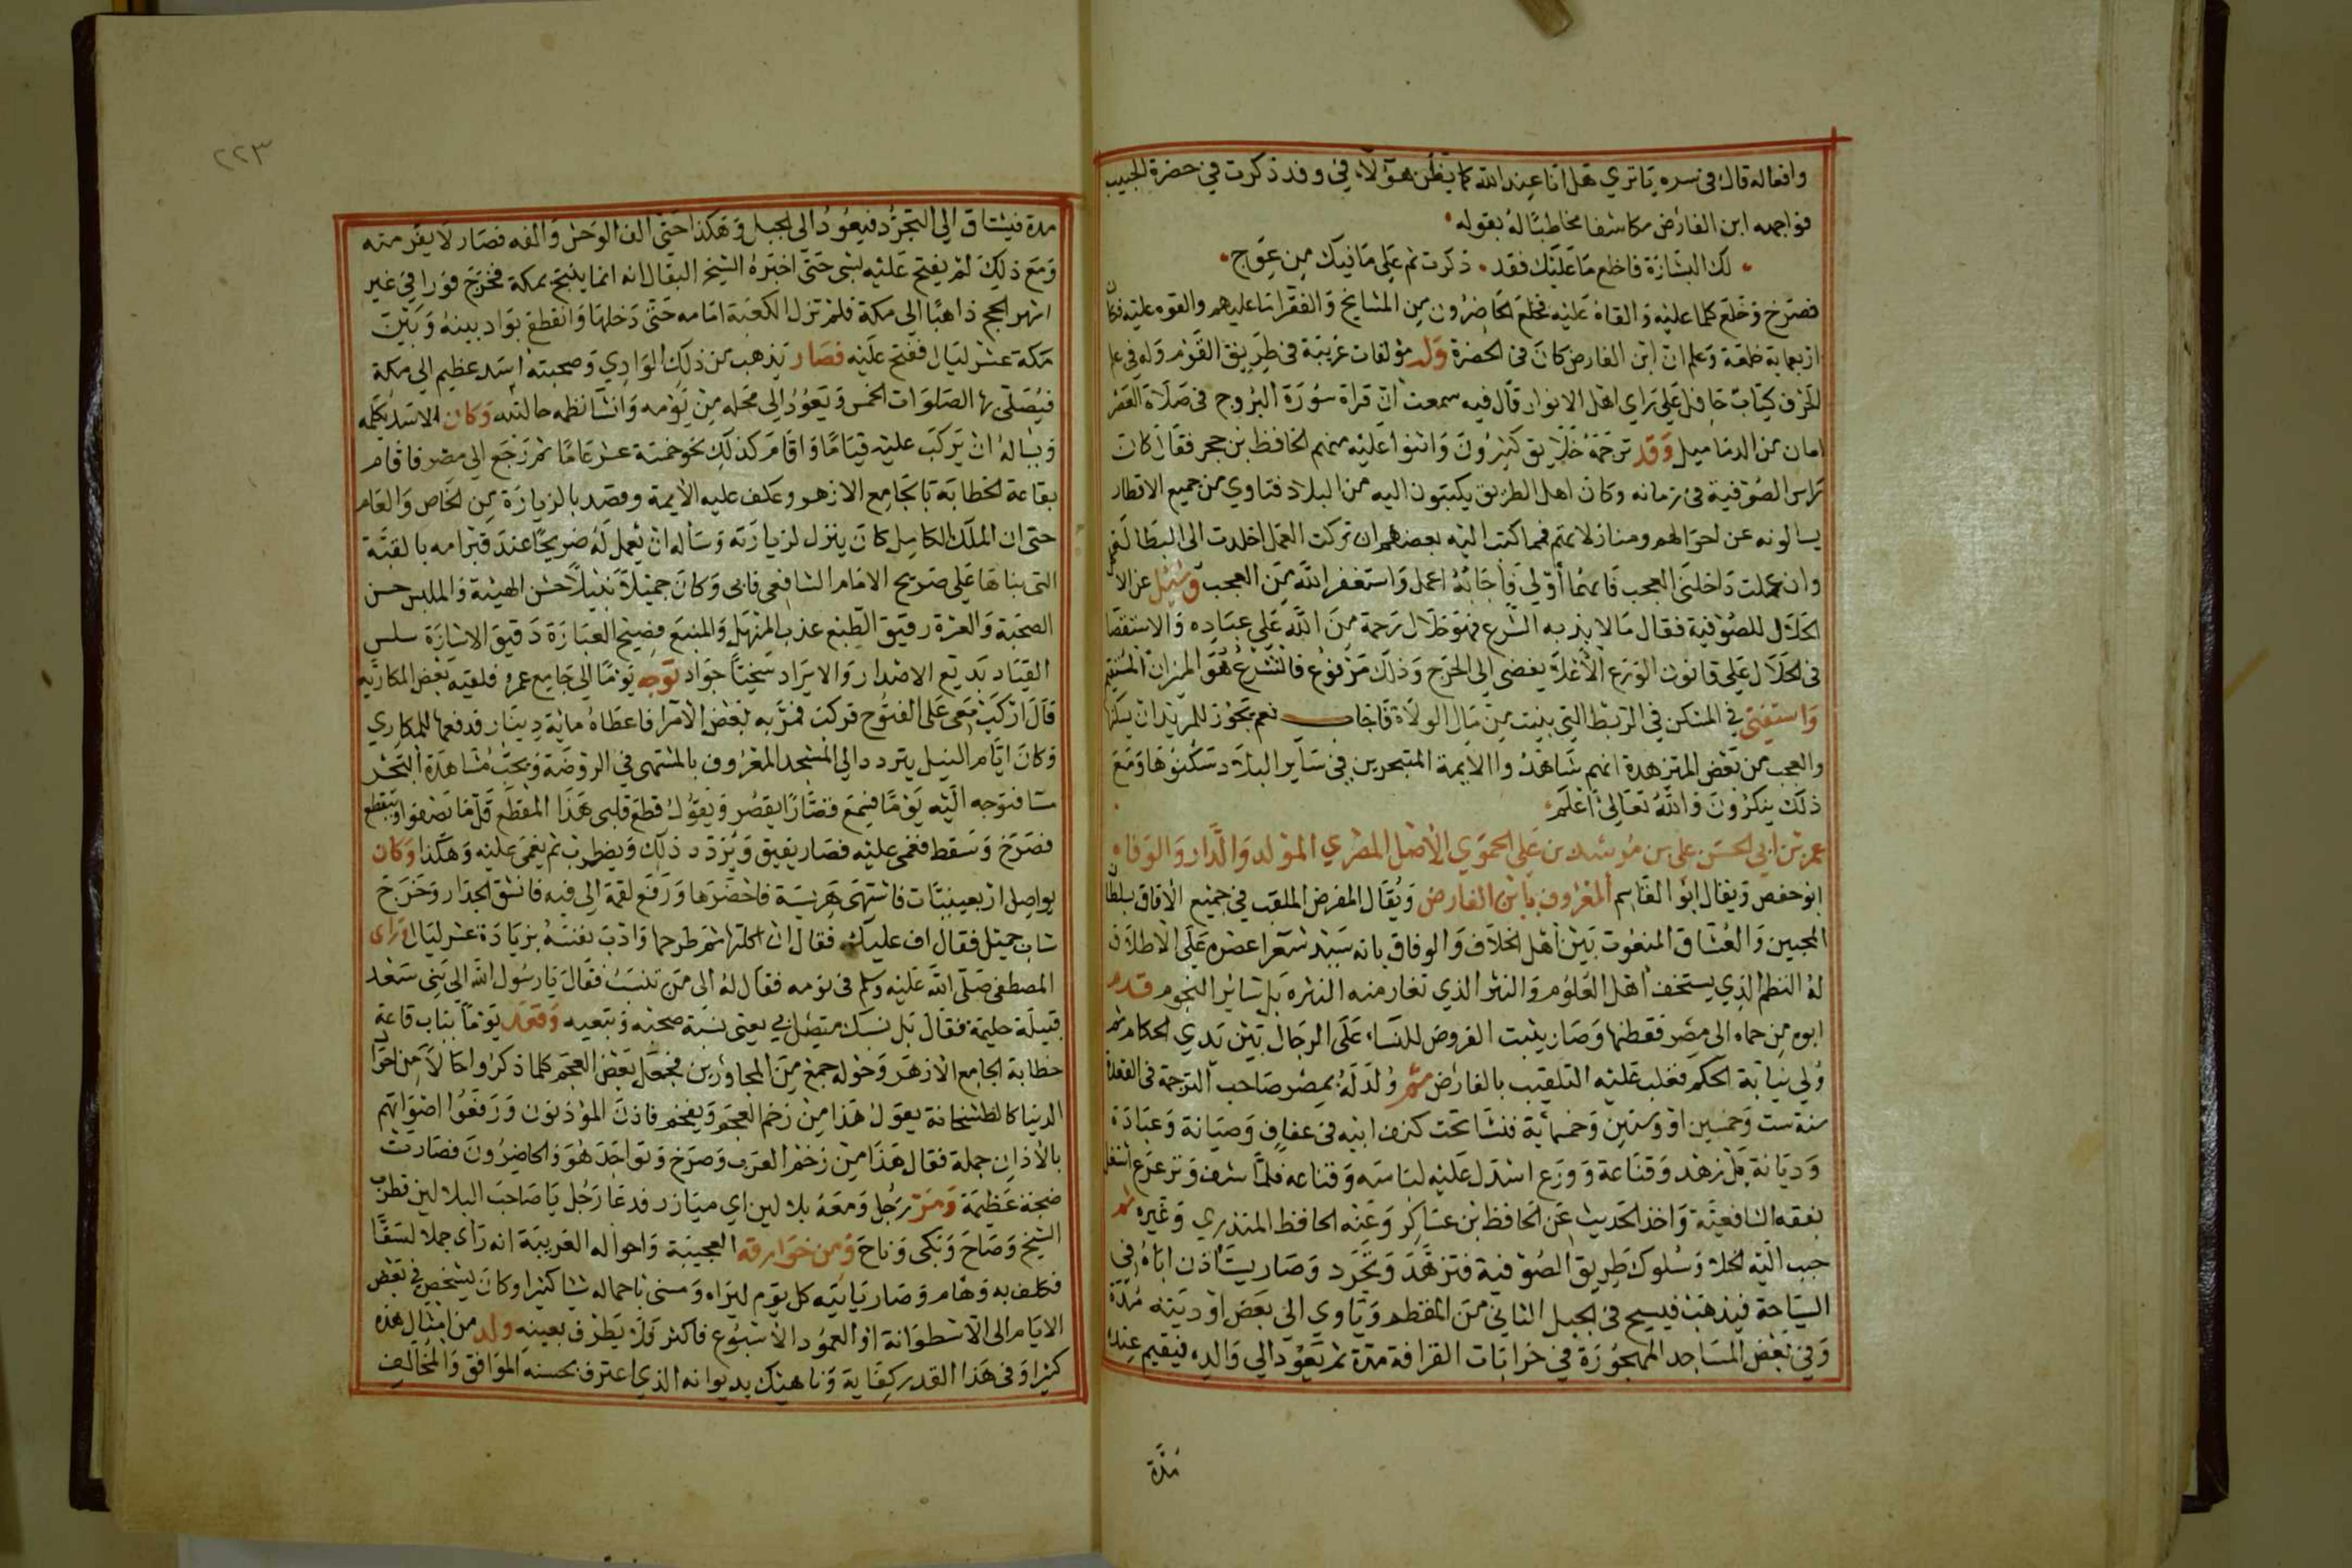 وافعاله قال في سره يا تري هل انا عند الله كما يظن هؤلاء في وقد ذكرت في حضرة الحبيب
فواجهه ابن الفارض مكاشفا مخاطبا له بقوله
لك البشارة فاخلع ما عليك فقد ذكرت ثم علي ما فيك من عوج
فصرخ وخلع كلما عليه والقاه عليه فخلع الحاضرون من المشايخ والفقرا ما عليهم والقوه عليه
اربعماية خلعة وعلم ان ابن الفارض كان في الحضرة وله مؤلفات غريبة في طريق القوم وله في علم
الحرف كتاب حافل علي راي اهل الانوار قال فيه سمعت ان قراة سورة البروج في صلاة العصر
امان من الدماميل وقد ترجمه خلايق كثيرون واثنوا عليه منهم الحافظ بن حجر فقال كان
راس الصوفية في زمانه وكان اهل الطريق يكتبون اليه من البلاد فتاوي من جميع الاقطار
يسالونه عن احوالهم ومنازلاتهم فمما كتب اليه بعضهم ان تركت العمل اخلدت الي البطالة
وان عملت داخلني العجب فايهما أولي فاجابه اعمل واستغفر الله من العجب وسئل عن
الحلال للصوفية فقال ما لا يذبه الشرع فهو حلال رحمة من الله علي عباده والاستقصا
في الحلال علي قانون الورع الأعلا يفضي الي الحرج وذلك مرفوع فالشرع هو الميزان المستقيم
واستفتي في المسكن في الربط التي بنيت من مال الولاة فاجاب نعم يجوز للمريد ان يسكنها
والعجب من بعض المتزهدة انهم شاهدوا الايمة المتبحرين في ساير البلاد سكنوها ومع
ذلك ينكرون والله تعالي اعلم
عمر بن ابي الحسن علي بن مرشد بن علي الحموي الاصل المصري المولد والدار والوفاه
ابو حفص ويقال ابو القاسم المعروف بابن الفارض ويقال المفرض الملقب في جميع الآفاق بسلطان
المحبين والعشاق المنعوت بين اهل الخلاف والوفاق بانه سيد شعرا عصره علي الاطلاق
له النظم الذي يستخف اهل العلوم والنثر الذي تغار منه النثره بل سائر النجوم قدم
ابوه من حماه الي مصر فقطنها وصار يثبت الفروض للنساء علي الرجال بين يدي الحكام ثم
ولي نيابة الحكم فغلب عليه التلقيب بالفارض ثم ولد له بمصر صاحب الترجمة في القعدة
سنة ست وخمسين او وستين وخمسماية فنشا تحت كنف ابيه في عفاف وصيانة وعبادة
وديانة بل زهد وقناعة وورع اسدل عليه لباسه وقناعه فلما شب وترعرع اشتغل
بفقه الشافعية واخذ الحديث عن الحافظ بن عساكر وعنه الحافظ المنذري وغيره ثم
حبب اليه الخلا وسلوك طريق الصوفية فتزهد وتجرد وصار يستأذن اباه في
السياحة فيذهب فيسيح في الجبل الثاني من المقطم وياوي الي بعض اوديته مدة
وفي بعض المساجد المهجورة في خرابات القرافة مدة ثم يعود الي والده فيقيم عنده
مدة
٢٢٣
مدة فيشتاق الي التجرد فيعود الي الجبل وهكذا حتي الف الوحش والفه فصار لا يفر منه
ومع ذلك لم يفتح عليه بشي حتي اخبره الشيخ البقال انه انما يفتح بمكة فخرج فورا في غير
اشهر الحج ذاهبا الي مكة فلم تزل الكعبة امامه حتي دخلها وانقطع بواد بينه وبين
مكة عشر ليال ففتح عليه فصار يذهب من ذلك الوادي وصحبته اسد عظيم الي مكة
فيصلي بها الصلوات الخمس ويعود الي محله من يومه وانشا نظمه حالته وكان الاسد يكلمه
ويساله ان يركب عليه قياما واقام كذلك نحو خمسة عشر عاما ثم رجع الي مصر فاقام
بقاعة الخطابة بالجامع الازهر وعكف عليه الايمة وقصد بالزيارة من الخاص والعام
حتي ان الملك الكامل كان ينزل لزيارته وساله ان يعمل له ضريحا عند قبر امه بالقبة
التي بناها علي ضريح الامام الشافعي فابي وكان جميلا نبيلا حسن الهيئة والملبس حسن
الصحبة والعشرة رقيق الطبع عذب المنهل والمنبع فصيح العبارة دقيق الاشارة سلس
القياد بديع الاصدار والايراد سخيا جواد توجه يوما الي جامع عمرو فلقيه بعض المكارية
قال اركب معي علي الفتوح فركب فمر به بعض الامرا فاعطاه ماية دينار فدفعها للمكاري
وكان ايام النيل يتردد الي المسجد المعروف بالمشتهي في الروضة ويحب مشاهدة البحر
مسا فتوجه اليه يوما فسمع قصارا يقصر ويقول قطع قلبي هذا المقطع قل ما يصفوا ويتقطع
فصرخ وسقط فغمي عليه فصار يفيق ويردد ذلك ويضطرب ثم يغمي عليه وهكذا وكان
يواصل اربعينيات فاشتهي هريسة فاحضرها ورفع لقمة الي فيه فانشق الجدار وخرج
شاب جميل فقال اف عليك فقال ان اكلتها ثم طرحها وادب نفسه بزيادة عشر ليال وراي
المصطفي صلي الله عليه وسلم في نومه فقال له الي من تنسب فقال يا رسول الله الي بني سعد
قبيلة حليمة فقال بل نسبك متصل بي يعني نسبة محبة وتبعيه وقعد يوما بباب قاعة
خطابة الجامع الازهر وحوله جمع من المجاورين فجعل بعض العجم كلما ذكروا حالا من احوال
الدنيا كالطشخانة يقول هذا من زخم العجم ويفخم فاذن المؤذنون ورفعوا اصواتهم
بالأذان جملة فقال هذا من زخم العرب وصرخ وتواجد هو والحاضرون فصارت
ضجة عظيمة ومر رجل ومعه بلالين اي ميازر فدعا رجل يا صاحب البلالين فطرب
الشيخ وصاح وبكي وناح ومن خوارقه العجيبة واحواله الغريبة انه راي جملا لسقا
فكلف به وهام وصار ياتيه كل يوم ليراه ومسني باحماله شيا كثيرا وكان يشخص في بعض
الايام الي الاسطوانة او العمود الاسبوع فاكثر ولا يطرف بعينه وله من امثال هذه
كثيرا وفي هذا القدر كفاية وناهيك بديوانه الذي اعترف بحسنه الموافق والمخالف